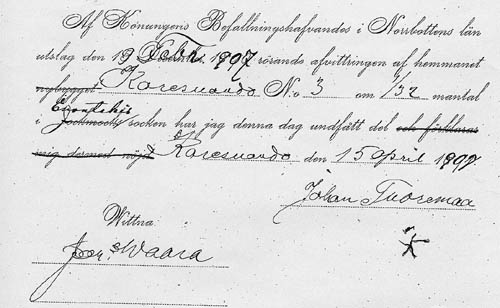 Af Konungens Befallningshafvandes i Norrbottens län
utslag den 19 Febr. 1897 rörande afvittringen af hemmanet
nybygget Karesuando No 3 om 1/32 mantal
i Enontekis Jockmocks socken har jag denna dag undfått del och förklaras
mig dermed nöjd Karesuando den 15 April 1897
Johan Tuoremaa
Wittna
Waara